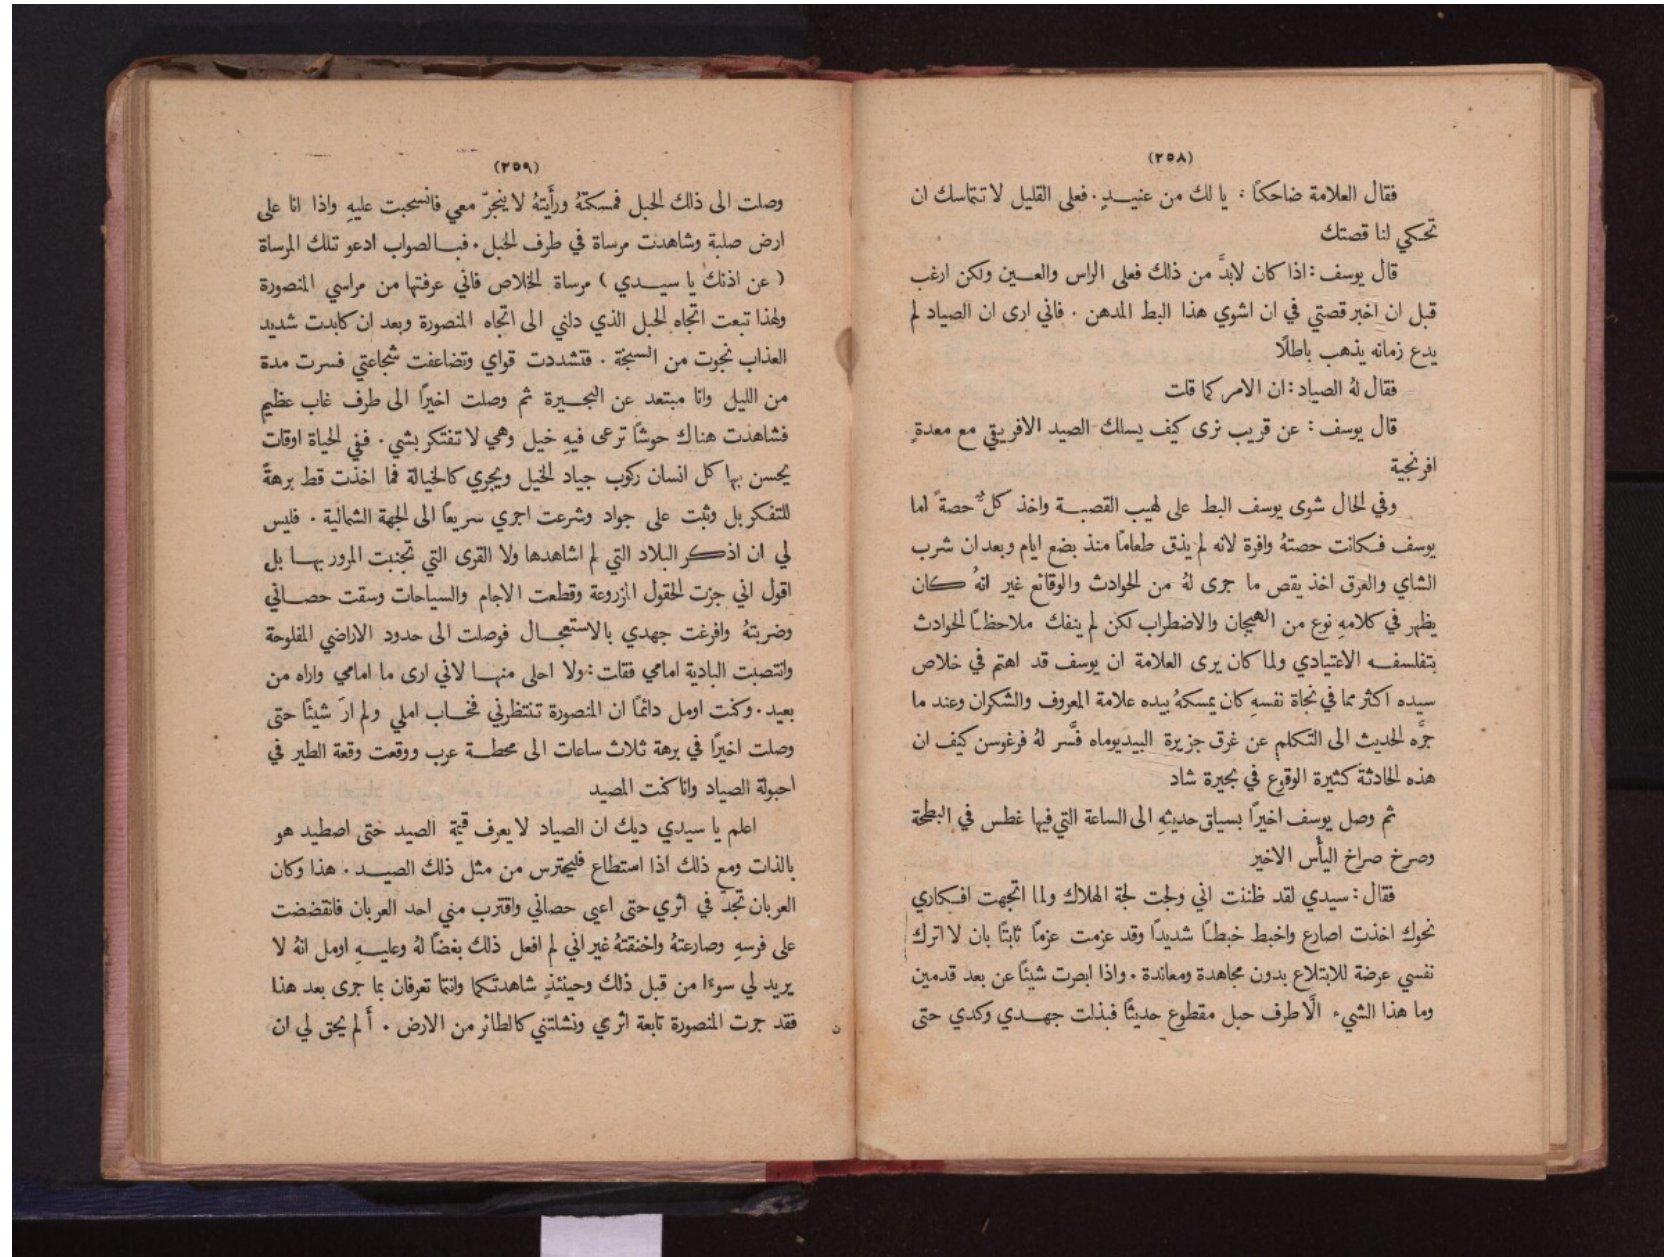 (٢٥٨)
فقال العلامة ضاحكًا : يا لك من عنيـــدٍ . فعلى القليل لا تتماسك ان
تحكي لنا قصتك
قال يوسف : اذا كان لابدَّ من ذلك فعلى الراس والعـــين ولكن ارغب
قبل ان اخبر قصتي في ان اشوي هذا البط المدهن . فاني ارى ان الصياد لم
يدع زمانه يذهب باطلًا
فقال لهُ الصياد : ان الامر كما قلت
قال يوسف : عن قريب نرى كيف يسلك الصيد الافريقي مع معدةٍ
افرنجية
وفي الحال شوى يوسف البط على لهيب القصبـــة واخذ كلٌّ حصةً اما
يوسف فـكانت حصتهُ وافرة لانه لم يذق طعامًا منذ بضع ايام وبعد ان شرب
الشاي والعرق اخذ يقص ما جرى لهُ من الحوادث والوقائع غير انهُ كان
يظهر في كلامهِ نوع من الهيجان والاضطراب لكن لم ينفك ملاحظـًا الحوادث
بتفلسفـــه الاعتيادي ولما كان يرى العلامة ان يوسف قد اهتم في خلاص
سيده اكثر مما في نجاة نفسهِ كان يمسكهُ بيده علامة المعروف والشكران وعند ما
جرَّه الحديث الى التكلم عن غرق جزيرة البيديوماه فسَّر لهُ فرغوسن كيف ان
هذه الحادثة كثيرة الوقوع في بحيرة شاد
ثم وصل يوسف اخيرًا بسياق حديثهِ الى الساعة التي فيها غطس في البطحة
وصرخ صراخ اليأس الاخير
فقال : سيدي لقد ظننت اني ولجت لجة الهلاك ولما اتجهت افـكاري
نحوك اخذت اصارع واخبط خبطـًا شديدًا وقد عزمت عزمًا ثابتًا بان لا اترك
نفسي عرضة للابتلاع بدون مجاهدة ومعاندة . واذا ابصرت شيئًا عن بعد قدمين
وما هذا الشيء الَّا طرف حبل مقطوع حديثًا فبذلت جهـــدي وكدي حتى
(٢٥٩)
وصلت الى ذلك الحبل فمسكتهُ ورأَيتهُ لا ينجرّ معي فانسحبت عليهِ واذا انا على
ارض صلبة وشاهدت مرساة في طرف الحبل . فبـــالصواب ادعو تلك المرساة
( عن اذنك يا سيـــدي ) مرساة الخلاص فاني عرفتها من مراسي المنصورة
ولهذا تبعت اتجاه الحبل الذي دلني الى اتجاه المنصورة وبعد ان كابدت شديد
العذاب نجوت من السبخة . فتشددت قواي وتضاعفت شجاعتي فسرت مدة
من الليل وانا مبتعد عن البحـــيرة ثم وصلت اخيرًا الى طرف غاب عظيم
فشاهدت هناك حوشًا ترعى فيهِ خيل وهي لا تفتكر بشي . ففي الحياة اوقات
يحسن بها كل انسان ركوب جياد الخيل ويجري كالخيالة فما اخذت قط برهةً
للتفكر بل وثبت على جواد وشرعت اجري سريعًا الى الجهة الشمالية . فليس
لي ان اذكر البلاد التي لم اشاهدها ولا القرى التي تجنبت المرور بهـــا بل
اقول اني جزت الحقول المزروعة وقطعت الاجام والسياحات وسقت حصـــاني
وضربتهُ وافرغت جهدي بالاستعجـــال فوصلت الى حدود الاراضي المفلوحة
وانتصبت البادية امامي فقات : ولا احلى منهـــا لاني ارى ما امامي واراه من
بعيد . وكنت اومل دائمًا ان المنصورة تنتظرني فخاب املي ولم ارَ شيئًا حتى
وصلت اخيرًا في برهة ثلاث ساعات الى محطـــة عرب ووقعت وقعة الطير في
احبولة الصياد وانا كنت المصيد
اعلم يا سيدي ديك ان الصياد لا يعرف قيمة الصيد حتى اصطيد هو
بالذات ومع ذلك اذا استطاع فليحترس من مثل ذلك الصيـــد . هذا وكان
العربان تجدّ في اثري حتى اعيى حصاني واقترب مني احد العربان فانقضضت
على فرسهِ وصارعتهُ واخنقتهُ غير اني لم افعل ذلك بغضًا لهُ وعليـــهِ اومل انهُ لا
يريد لي سوءًا من قبل ذلك وحينئذٍ شاهدتكما وانتما تعرفان بما جرى بعد هذا
فقد جرت المنصورة تابعة اثري ونشلتني كالطائر من الارض . أَ لم يحق لي ان